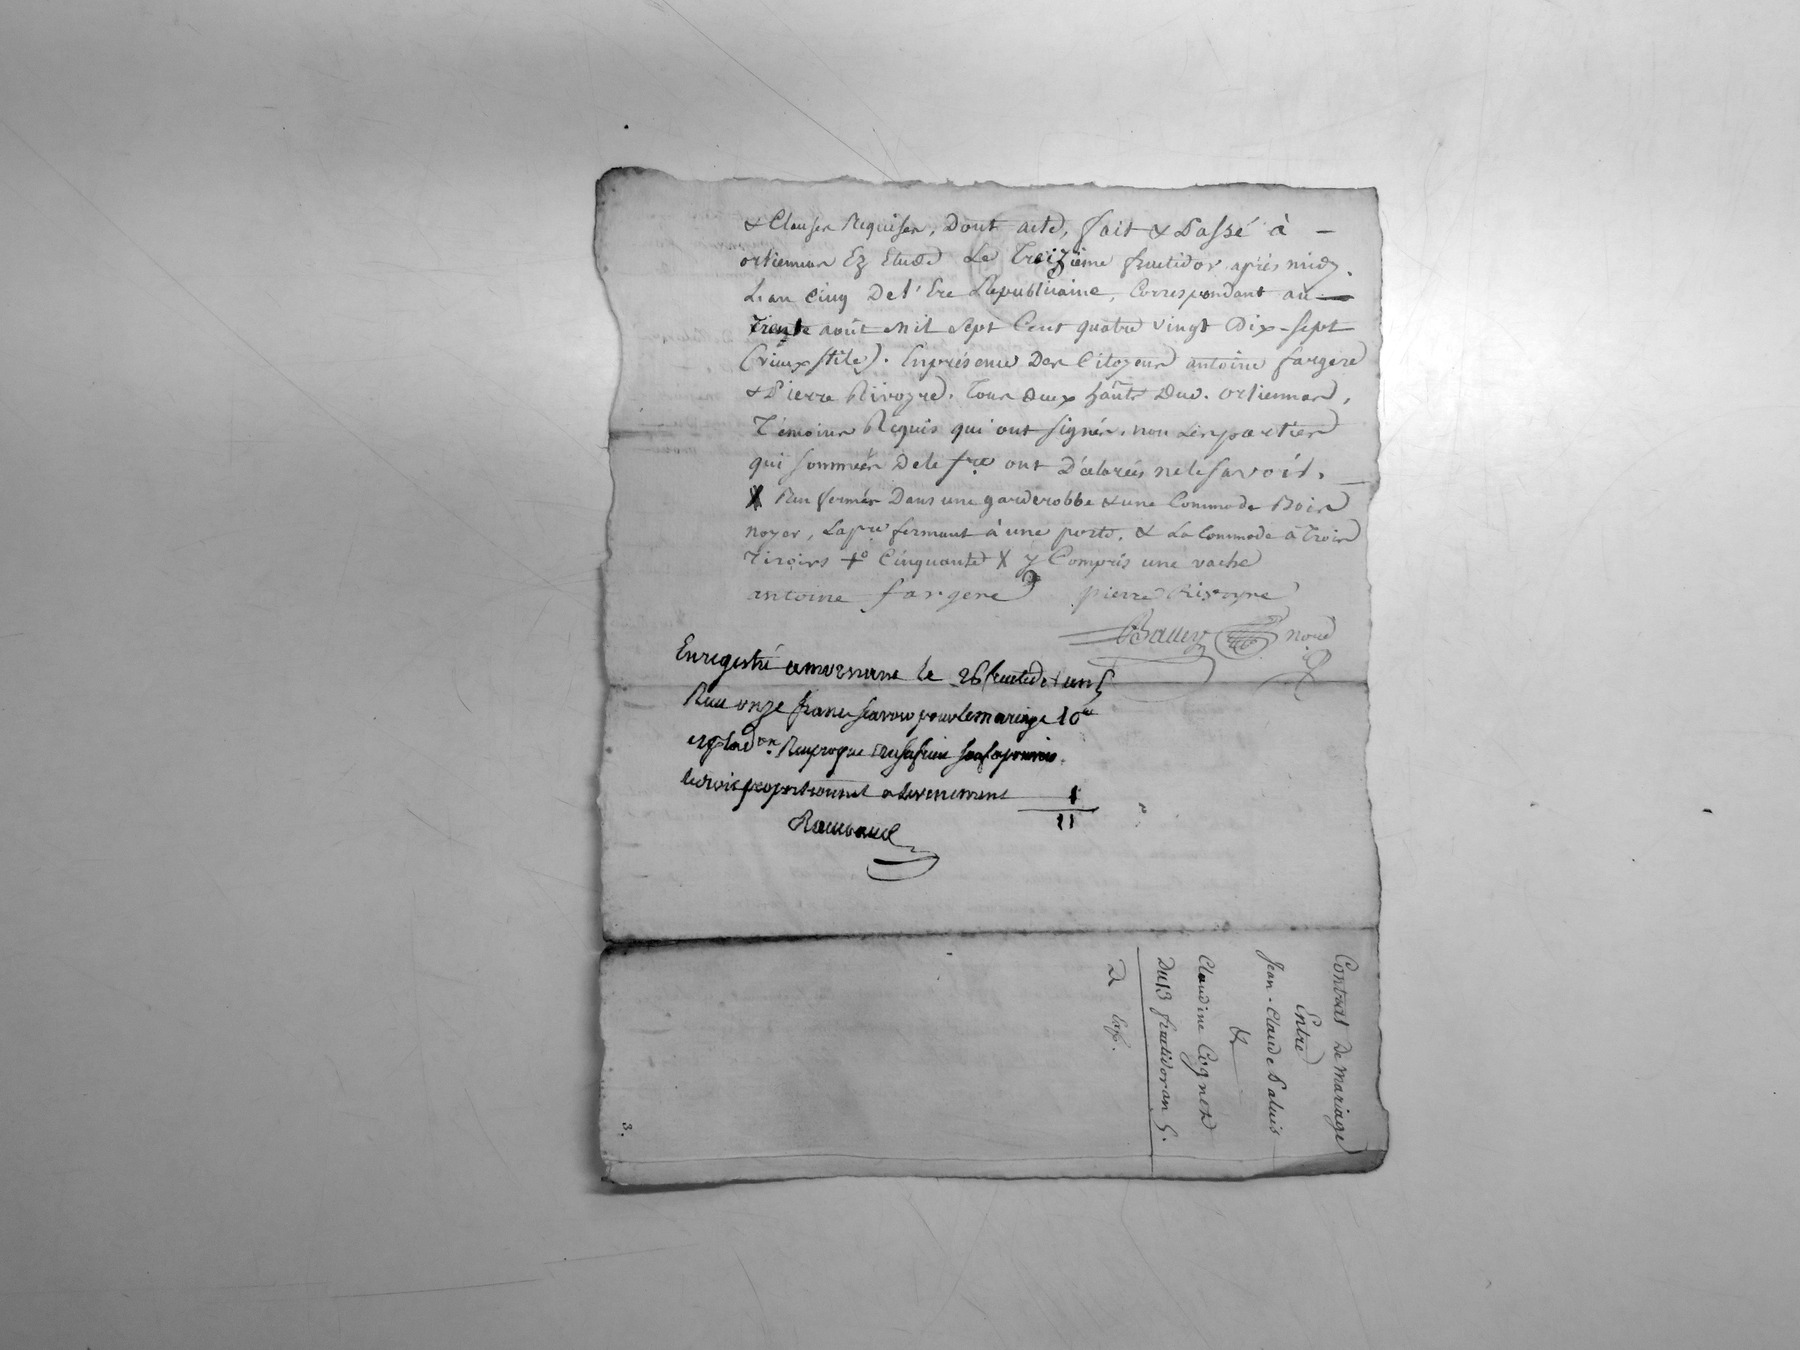 & Clauses Requises, Dont acte, fait & Passé à —
orliennas Ez Etude Le Treizième fructidor après midy.
L'an cinq De l'Ere Republicaine, Correspondant au —
Trente août Mil Sept Cent quatre vingt Dix-sept
(vieux stile). En présence Des Citoyens antoine fargere
& Pierre Rivoyre, Tous deux hânts Dud. orliennas,
Témoins Requis qui ont signés, non Les parties
qui sommées De le fre ont Déclarées ne le savoir.
X Renfermés Dans une garderobbe & une Commode Bois
noyer, La pre fermant à une porte, & La Commode à Trois
Tiroirs +o Cinquante X y Compris une vache
antoine fargere pierre Rivoyre
Balley Nore
Enregistré a mornant le 26 fructidor an 5
Reçu onze francs savoir pour le mariage 10
et pla don Reciproque
le droit proportionnel a levenement 1
11
Contrat De mariage
Entre
Jean-Claude Paluis
&
Claudine Cognet
Du 13 fructidor an 5.
3.